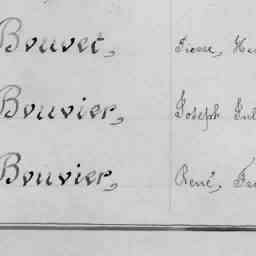 Bouvet, Pierre,
Bouvier, Joseph
Bouvier, René,